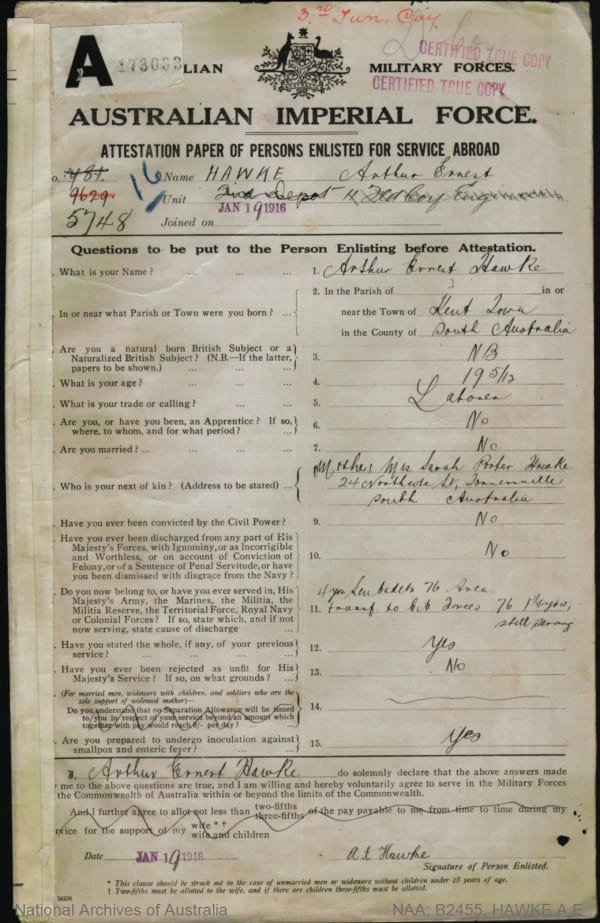 3rd Tun. Coy
A 173033 LIAN MILITARY FORCES.
CERTIFIED TRUE COPY
CERTIFIED TRUE COPY
AUSTRALIAN IMPERIAL FORCE.
ATTESTATION PAPER OF PERSONS ENLISTED FOR SERVICE ABROAD
o. 481. 16 Name HAWKE Arthur Ernest
9629 Unit Depot
5748 JAN 19 1916
Joined on
Questions to be put to the Person Enlisting before Attestation.
. What is your Name? ... ... ... 1. Arthur Ernest Hawke
. In or near what Parish or Town were you born? ... 2. In the Parish of in or
near the Town of Kent Town
in the County of South Australia
. Are you a natural born British Subject or a
Naturalized British Subject? (N.B.—If the latter,
papers to be shown.) ... ... 3. NB
. What is your age? ... ... ... 4. 19 5/12
. What is your trade or calling? ... ... 5. Laborer
. Are you, or have you been, an Apprentice? If so,
where, to whom, and for what period? ... 6. No
. Are you married? ... ... ... ... 7. No
. Who is your next of kin? (Address to be stated) ... Mother Mrs Sarah Porter Hawke
24 St,
South Australia
. Have you ever been convicted by the Civil Power? 9. No
. Have you ever been discharged from any part of His
Majesty's Forces, with Ignominy, or as Incorrigible
and Worthless, or on account of Conviction of
Felony, or of a Sentence of Penal Servitude, or have
you been dismissed with disgrace from the Navy? 10. No
. Do you now belong to, or have you ever served in, His
Majesty's Army, the Marines, the Militia, the
Militia Reserve, the Territorial Force, Royal Navy
or Colonial Forces? If so, state which, and if not
now serving, state cause of discharge ... 11. 4 yrs Sen Cadets 76 Area
transf. to Cit Forces 76
still serving
. Have you stated the whole, if any, of your previous
service? ... ... ... ... 12. Yes
. Have you ever been rejected as unfit for His
Majesty's Service? If so, on what grounds? ... 13. No
. (For married men, widowers with children, and soldiers who are the
sole support of widowed mother)—
Do you understand that no Separation Allowance will be issued
to you in respect of your service beyond an amount which
together with pay would reach 8/- per day? ... 14.
. Are you prepared to undergo inoculation against
smallpox and enteric fever? ... ... 15. Yes
I, Arthur Ernest Hawke do solemnly declare that the above answers made
me to the above questions are true, and I am willing and hereby voluntarily agree to serve in the Military Forces
the Commonwealth of Australia within or beyond the limits of the Commonwealth.
And I further agree to allot not less than two-fifths three-fifths of the pay payable to me from time to time during my
rvice for the support of my wife * † wife and children
Date JAN 19 1916 A E Hawke
Signature of Person Enlisted.
* This clause should be struck out in the case of unmarried men or widowers without children under 18 years of age.
† Two-fifths must be allotted to the wife, and if there are children three-fifths must be allotted.
National Archives of Australia NAA: B2455, HAWKE A E